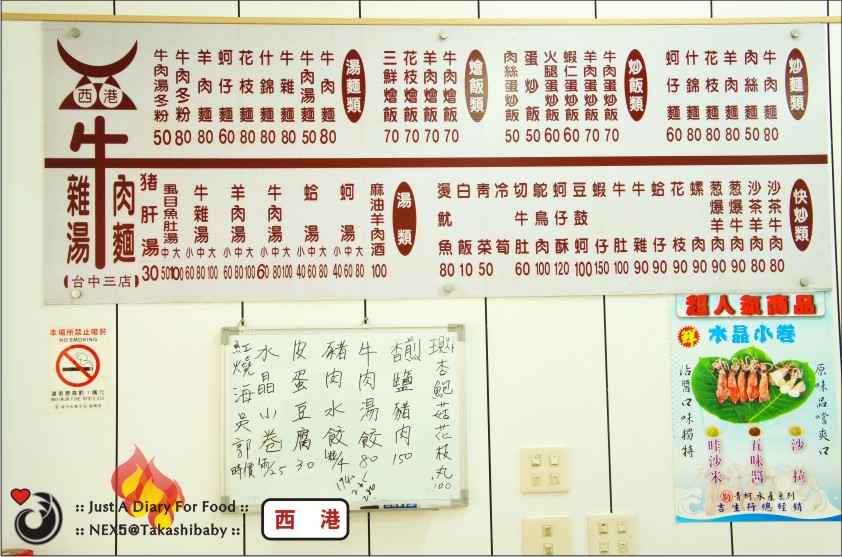 西港
牛
雜湯
肉麵
【台中三店】
炒麵類
牛肉麵 80
肉絲麵 50
羊肉麵 80
花枝麵 80
什錦麵 80
蚵仔麵 60
炒飯類
牛肉蛋炒飯 70
羊肉蛋炒飯 70
蝦仁蛋炒飯 60
火腿蛋炒飯 60
蛋炒飯 50
肉絲蛋炒飯 50
燴飯類
牛肉燴飯 70
羊肉燴飯 70
花枝燴飯 70
三鮮燴飯 70
湯麵類
牛肉麵 80
牛肉湯麵 50
牛雜麵 80
什錦麵 80
花枝麵 80
蚵仔麵 60
羊肉麵 80
牛肉冬粉 80
牛肉湯冬粉 50
快炒類
沙茶牛肉 80
沙茶羊肉 80
蔥爆牛肉 90
蔥爆羊肉 90
螺肉 90
花枝 90
蛤仔 90
牛雜 90
牛肚 100
蝦仁 150
豆鼓蚵 100
蚵仔酥 120
鴕鳥肉 100
切牛肚 60
冷筍
青菜 50
白飯 10
燙魷魚 80
湯類
麻油羊肉酒 100
蚵湯 小40 中60 大80
蛤湯 小40 中60 大80
牛肉湯 小60 中80 大100
羊肉湯 小60 中80 大100
牛雜湯 小60 中80 大100
虱目魚肚湯 中50 大100
猪肝湯 30
本場所禁止吸菸
NO SMOKING
現炸杏鮑菇花枝丸 100
香煎鹽豬肉 150
牛肉湯餃 80
豬肉水餃 4
皮蛋豆腐 30
水晶小卷 25
紅燒海吳郭 時價
超人氣商品
水晶小卷
沾醬口味獨特
原味品嚐爽口
哇沙米
五味醬
沙拉
青蚵水產系列
吉生行總經銷
:: Just A Diary For Food ::
:: NEX5@Takashibaby ::
西 港